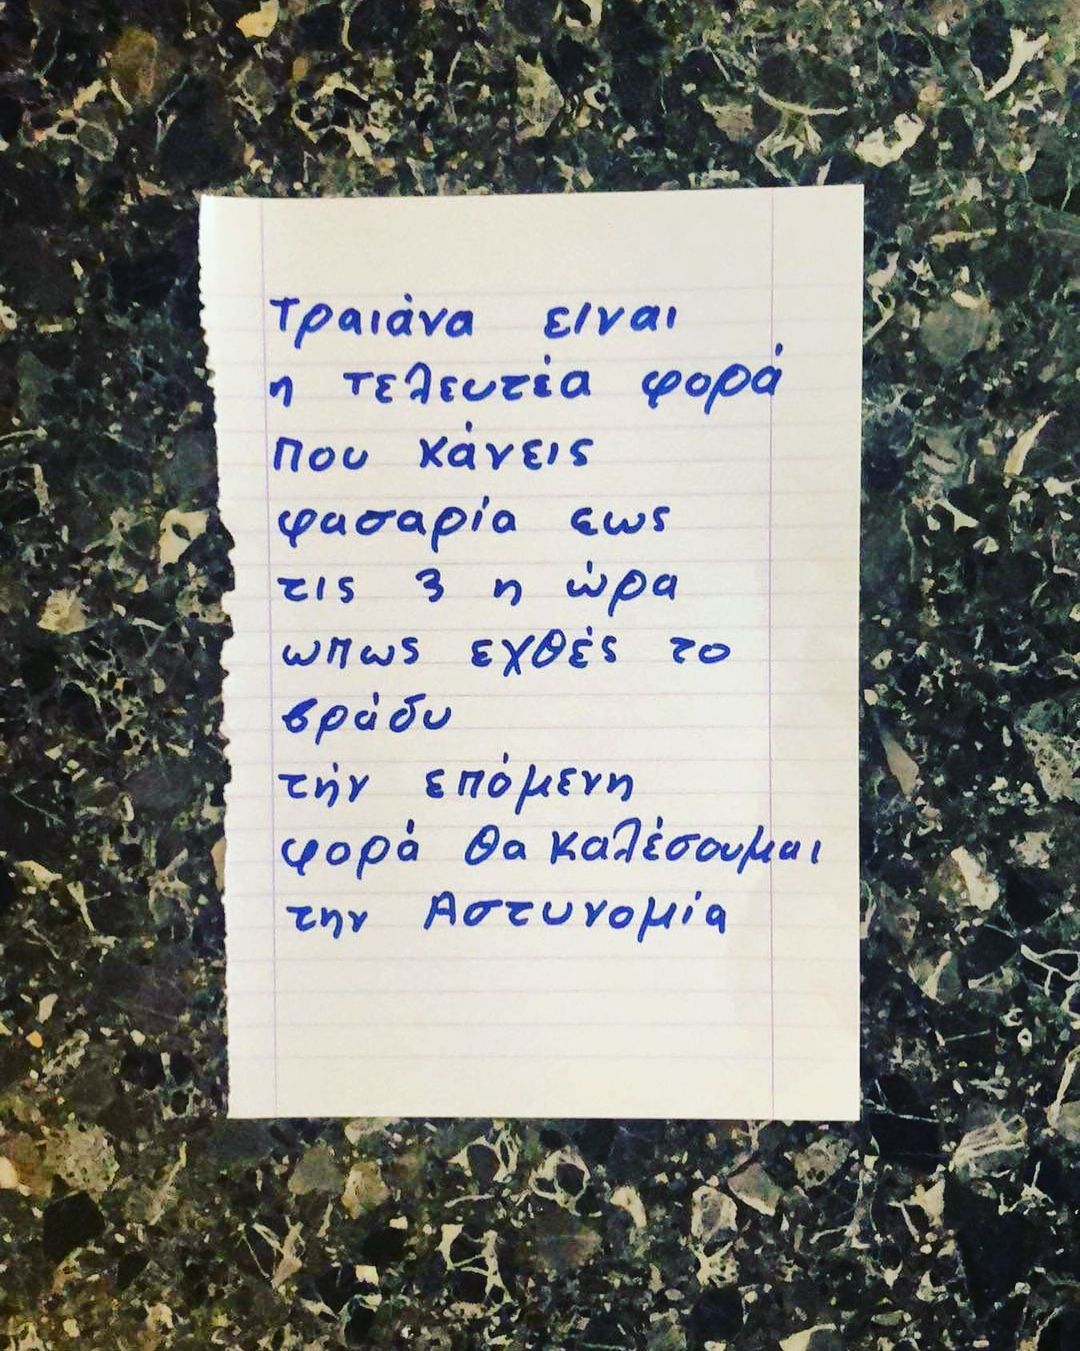 Τραιάνα ειναι
η τελευτέα φορά
που κάνεις
φασαρία εως
τις 3 η ώρα
ωπως εχθές το
βράδυ
τήν επόμενη
φορά θα καλέσουμαι
την Αστυνομία